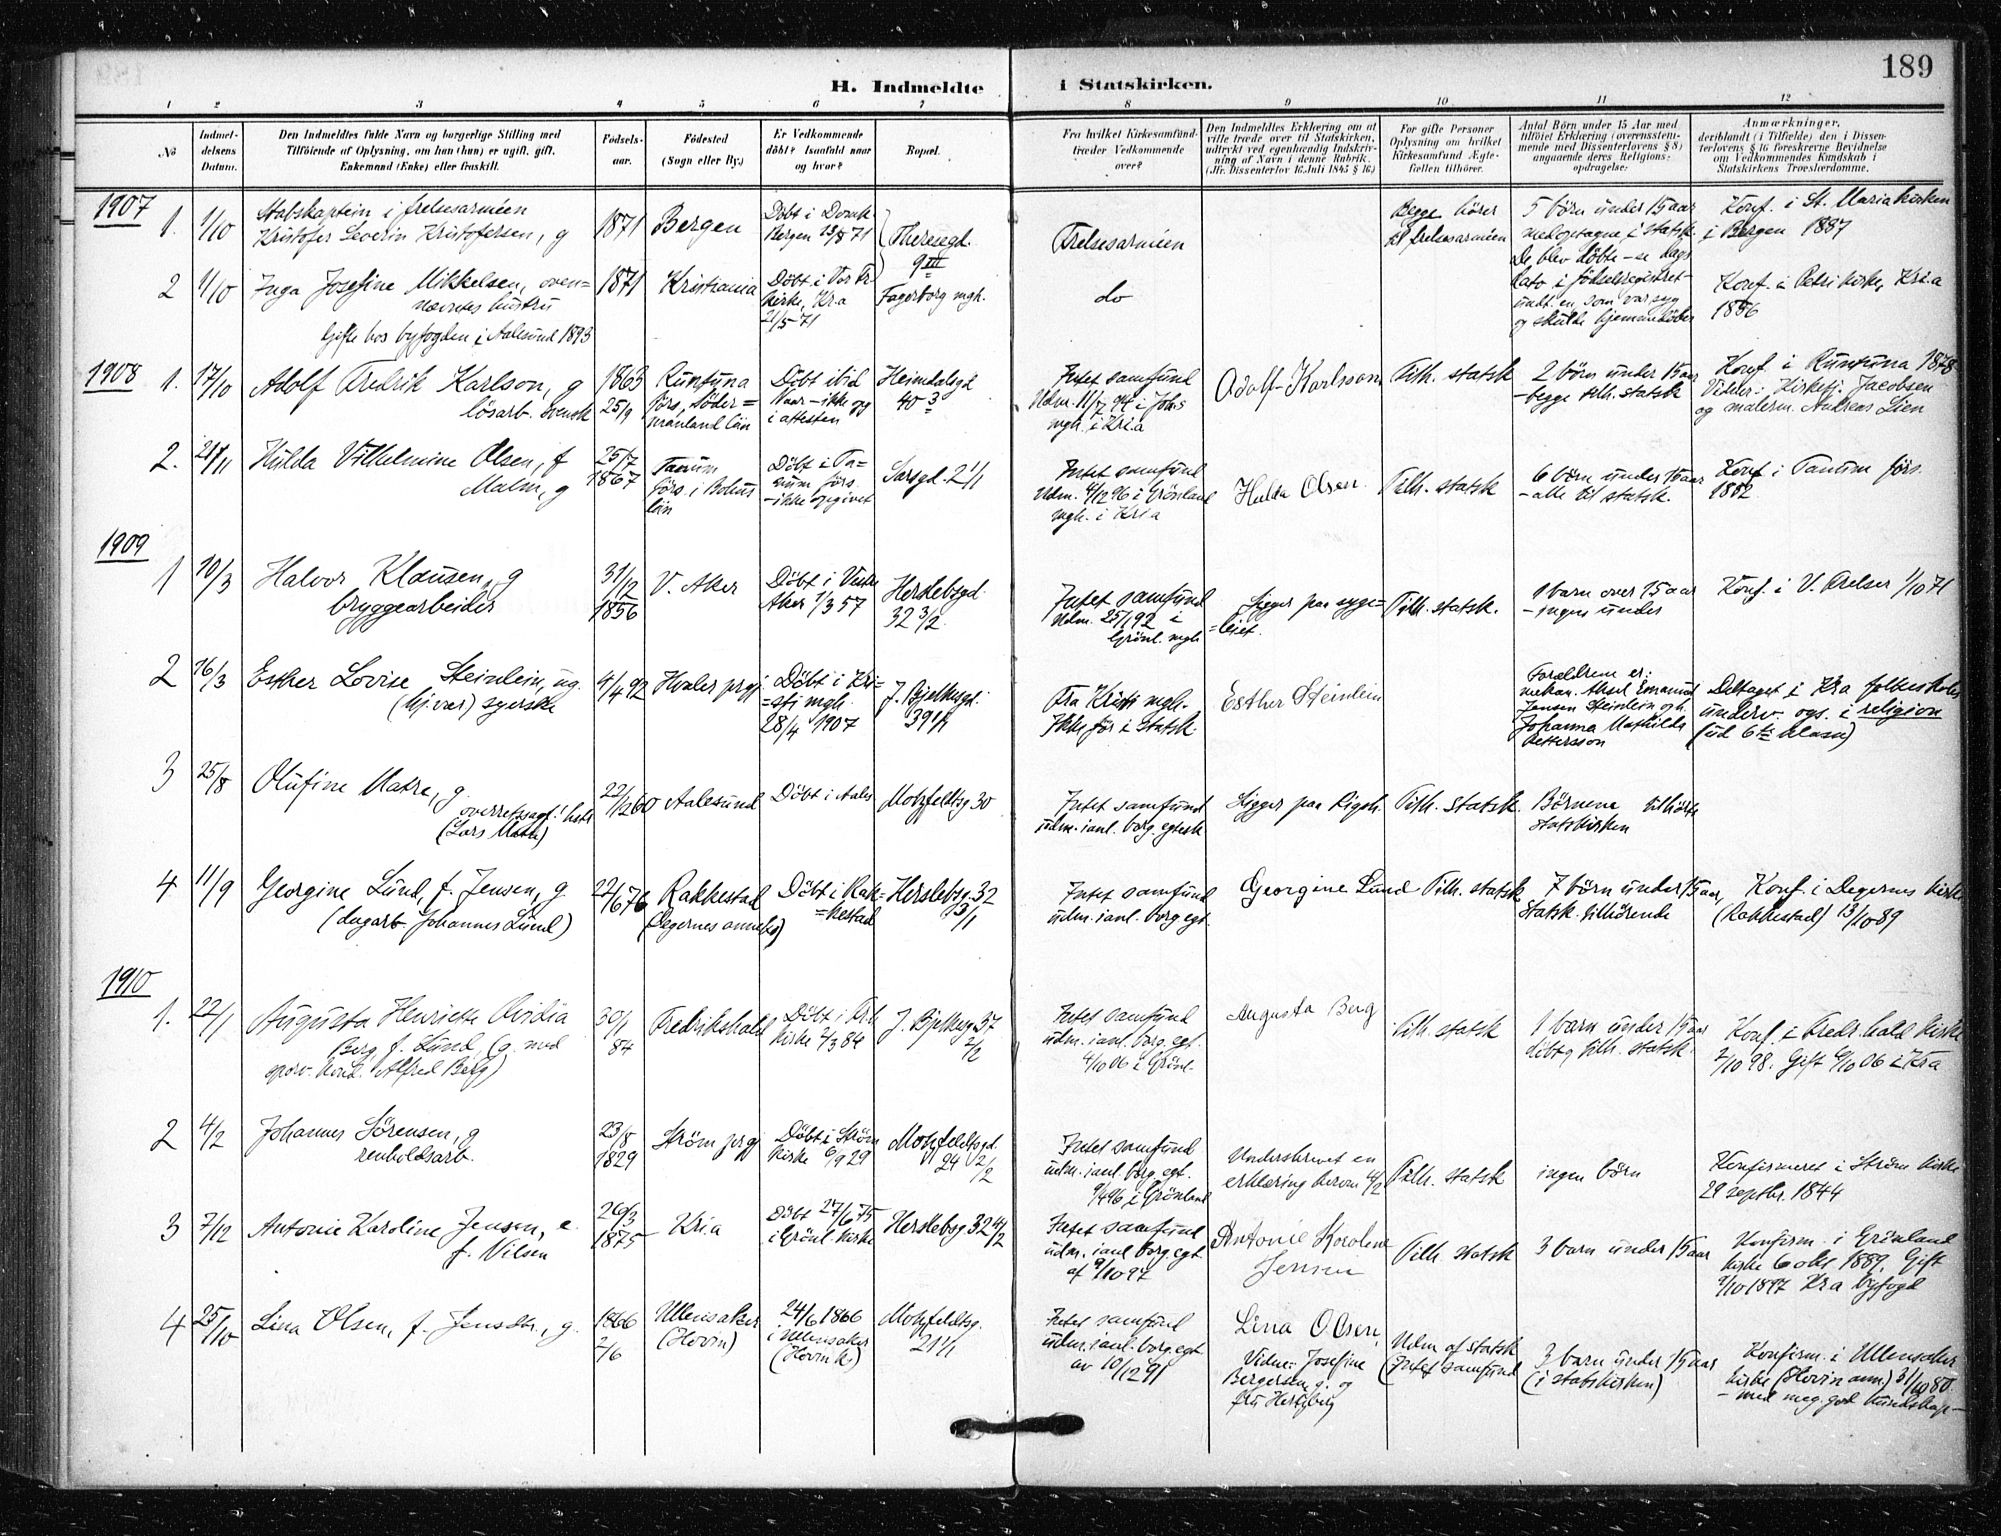 189
H. Indmeldte i Statskirken.
1 2 3 4 5 6 7 8 9 10 11 12
No
Indmel-
delsens
Datum.
Den Indmeldtes fulde Navn og borgerlige Stilling med
Tilföiende af Oplysning, om han (hun) er ugift, gift,
Enkemand (Enke) eller fraskilt.
Födsels-
aar.
Födested
(Sogn eller By.)
Er Vedkommende
döbt? Isaafald naar
og hvor?
Bopæl.
Fra hvilket Kirkesamfund
træder Vedkommende
over?
Den Indmeldtes Erklæring om at
ville træde over til Statskirken,
udtrykt ved egenhændig Indskriv-
ning af Navn i denne Rubrik.
(Jfr. Dissenterlov 16 Juli 1845 § 16)
For gifte Personer
Oplysning om hvilket
Kirkesamfund Ægte-
fællen tilhörer.
Antal Börn under 15 Aar med
tilföiet Erklæring (overensstem-
mende med Dissenterlovens § 8)
angaaende deres Religions-
opdragelse:
Anmærkninger,
deriblandt (i Tilfælde) den i Dissen-
terlovens § 16 foreskrevne Bevidnelse
om Vedkommendes Kundskab i
Statskirkens Troeslærdomme.
1907
1. 1/10
Stabskaptein i frelsesarméen
Kristofer Severin Kristofersen, g
1871
Bergen
Döbt i Domk.
Bergen 13/8 71
Theresegd.
9 III
Frelsesarméen
Begge hörer
til frelsesarméen
5 börn under 15 aar
medoptagne i statsk.
De blev döbte
Konf. i St. Mariakirken
i Bergen 1887
2 1/10
Inga Josefine Mikkelsen, oven-
nævntes hustru
Gifte hos byfogden i Aalesund 1893
1871
Kristiania
Döbt i Vor Fr
kirke, Kr.a
21/5 71
Fagerborg mgh.
do
dato i födselsregistret
undt. en, som var syg
og skulde hjemmedöbes
Konf. i Petri kirke, Kr.a
1886
1908
1. 17/10
Adolf Fredrik Karlson, g
lösarb. svensk
1863
25/9
Runtuna
förs, Söder=
manland län
Döbt ibid
Naar - ikke opg
i attesten
Heimdalsgd
40 3
Intet samfund
Udm. 11/7 94 i Johs
mgh. i Kr.a
Adolf Karlsson
Tilh. statsk
2 börn under 15 aar
- begge tilh. statsk
Konf. i Runtuna 1878
Vidner: Kirketj. Jacobsen
og malerm. Andreas Lien
2. 21/11
Hulda Vilhelmine Olsen, f
Malm, g
25/7
1867
Tanum
förs. i Bohus
län
Döbt i Ta=
num förs.
- ikke opgivet
Sarsgd. 2 1/1
Intet samfund
Udm. 4/12 96 i Grönland
mgh. i Kr.a
Hulda Olsen.
Tilh. statsk
6 börn under 15 aar
- alle til statsk.
Konf. i Tanum förs.
1882
1909
1 10/3
Halvor Klausen, g
bryggearbeider
31/12
1856
V. Aker
Döbt i Vestre
Aker 1/3 57
Herslebsgd.
32 3/2
Intet samfund
Udm. 25/1 92 i
Grönl. mgh
Ligger paa syge=
=leiet.
Tilh. statsk.
1 barn over 15 aar
- ingen under
Konf. i V. 1/10 71
2 16/3
Esther Lovise Steinlein, ug.
(hjver) syerske
4/4 92
Hvaler prgj.
Döbt i Kri=
=sti mgh.
28/4 1907
J. Bjelkesgd.
39 1/1
Fra Kristi mgh.
Ikke för i statsk.
Esther Steinlein
Forældrene er:
mekan. Axel Emanuel
Jensen Steinlein og h.
Johanna Mathilda
Pettersson
Deltaget i Kra folkeskoles
underv. ogs. i religion
(ud 6te klasse)
3 25/8
Olufine Matre, g.
overretssagf. hstr
(Lars Matre)
22/12 60
Aalesund
Döbt i Aales
Motzfeldtsg 30
Intet samfund
udm. i anl. borg. egtesk
Ligger paa Rigsh.
Tilh. statsk.
Börnene tilhörte
statskirken
4 11/9
Georgine Lund, f. Jensen, g
(dagarb. Johannes Lund)
22/6 76
Rakkestad
(Degernes anneks)
Döbt i Rak=
=kestad
Herslebsg. 32
3/1
Intet samfund
udm. i anl. borg. egt.
Georgine Lund
Tilh. statsk
7 börn under 15 aar,
statsk. tilhörende
Konf. i Degernes kirke
(Rakkestad) 13/10 89
1910
1. 22/1
Augusta Henriette Ovidia
Berg, f. Lund (g. med
sporv. kond. Alfred Berg)
30/1
84
Fredrikshald
Döbt i Fr.h
kirke 2/3 84
J. Bjelkesg 37
2/2
Intet samfund
udm. i anl. borg. egt.
4/10 06 i Grönl.
Augusta Berg
Tilh. statsk
1 barn under 15 aar
döbt og tilh. statsk.
Konf. i Fredr.hald kirke
2/10 98. Gift 6/10 06 i Kra
2 4/2
Johannes Sörensen, g
renholdsarb.
23/8
1829
Ström prgj
Döbt i Ström
kirke 6/9 29
Motzfeldtsgd.
24 2/2
Intet samfund
udm. i anl. borg. egt.
9/4 96 i Grönland
Underskrevet en
erklæring herom 4/2
Tilh. statsk
ingen börn
Konfirmeret i Ström kirke
29 septbr. 1844
3 7/12
Antonie Karoline Jensen, e.
f. Nilsen
26/3
1875
Kr.a
Döbt 27/6 75
i Grönl. kirke
Herslebsg. 32 4/2
Intet samfund
udm. i anl. borg. egt
af 9/10 97
Antonie Karoline
Jensen
Tilh. statsk
3 barn under 15 aar
Konfirm. i Grönland
kirke 6 okt 1889. Gift
9/10 1897 Kra byfogd
4 25/10
Lina Olsen, f. Jensdtr., g.
1866
2/6
Ullensaker
(Hovin)
24/6 1866
i Ullensaker
(Hovin k)
Motzfeldtsg.
21 1/1
Intet samfund
udm. i anl. borg. egt
av 10/12 91
Lina Olsen
Vidne: Josefine
Bergersen, g. og
fru Hertzberg
Udm af statsk
(Intet samfund)
3 barn under 15 aar
(i statskirken)
Konfirm. i Ullensaker
kirke (Hovin ann) 31/10 80
- med meg. god kundskap -